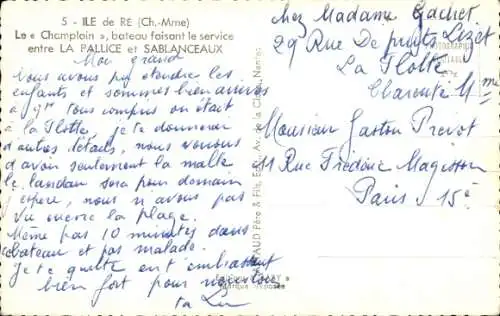 5 - ILE de RE (Ch.-Mme)
Le « Champlain », bateau faisant le service
entre LA PALLICE et SABLANCEAUX
Mon grand
Nous avons pu étendre les
enfants et sommes bien arrivés
à tous compris on était
à la Flotte, je te donnerai
d'autres détails, nous venons
d'avoir seulement la malle
le landau sera pour demain
j'espère, nous n avons pas
vu encore la plage.
Même pas 10 minutes dans
bateau et pas malade.
Je te quitte en t'embrassant
bien fort pour nous tous
ta Lu
chez Madame Gachet
29 Rue De puyts Lizet
La Flotte
Charente Mme
Monsieur Gaston Prevot
11 Rue Frédéric Magisson
Paris 15e
Père & Fils, Av. de la Nantes